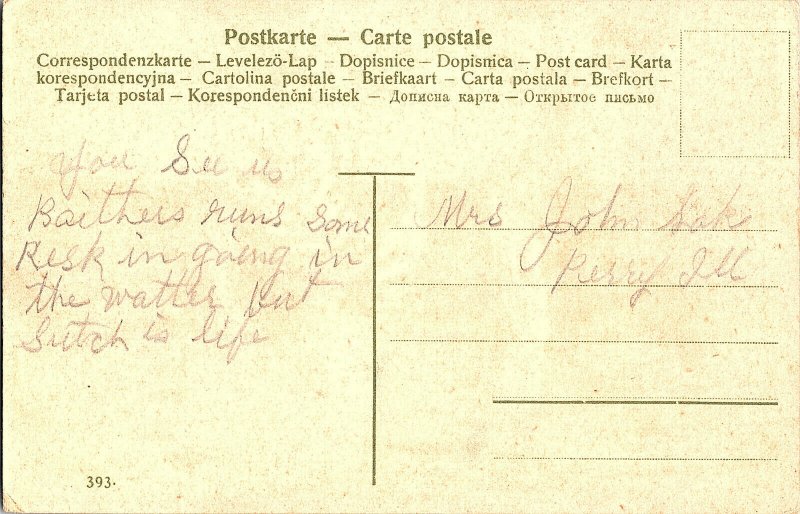 Postkarte — Carte postale
Correspondenzkarte — Levelezö-Lap — Dopisnice — Dopisnica — Post card — Karta
korespondencyjna — Cartolina postale — Briefkaart — Carta postala — Brefkort —
Tarjeta postal — Korespondenčni listek — Дописна карта — Открытое письмо
you See us
Baithers runs some
Resk in going in
the watter but
Sutch is life
Mrs John
Perry Ill
393.